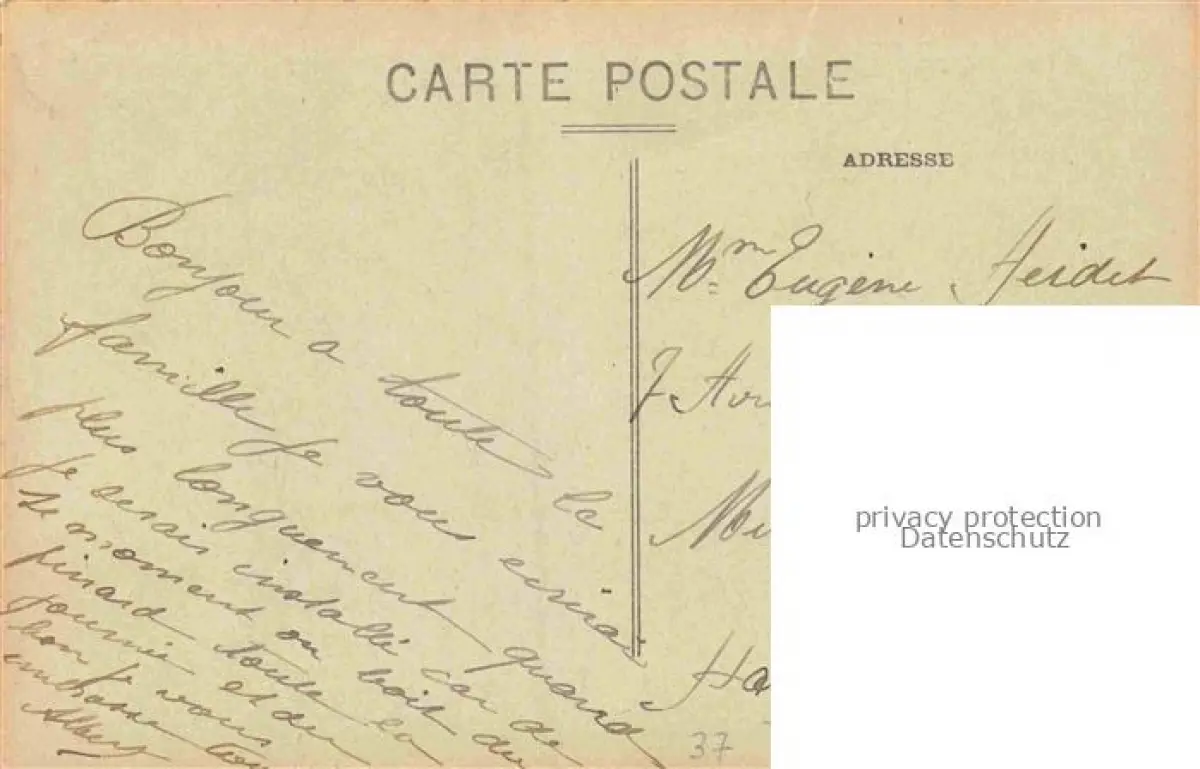 CARTE POSTALE
ADRESSE
Bonjour a toute la
famille je vous ecrirai
plus longuement quand
je serais installé car de
se moment on boit du
pinard toute la
journée et du
bon je vous
embrasse tous
Albert
Mme Eugène Heidet
7 Av
M
Ha
37
privacy protection
Datenschutz